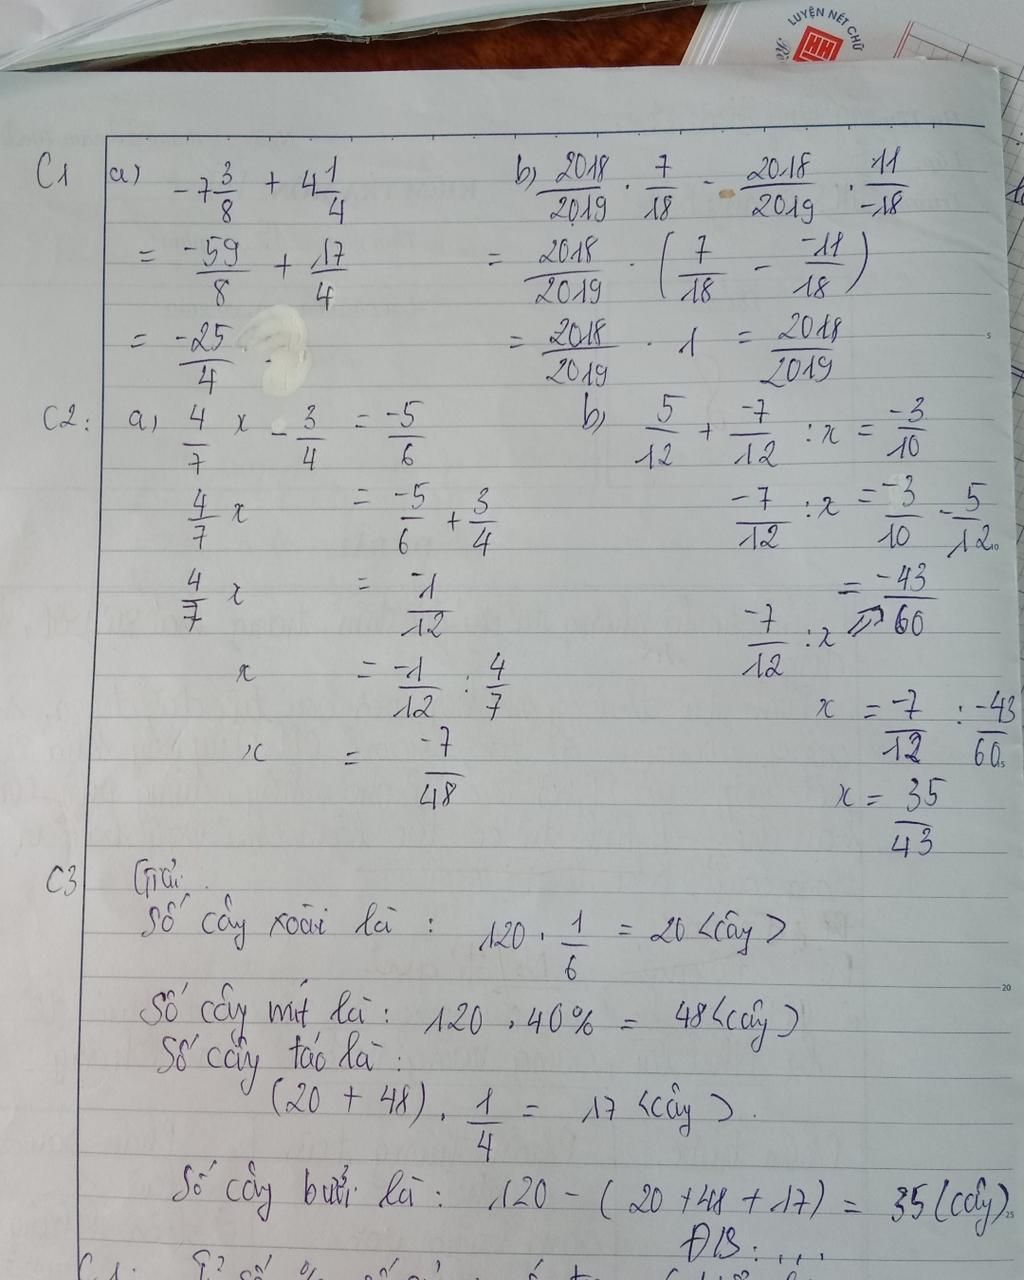 LUYỆN NÉT CHỮ
C1 a) -7 3/8 + 4 1/4
= -59/8 + 17/4
= -25/4
b) 2018/2019 . 7/18 - 2018/2019 . 11/-18
= 2018/2019 . (7/18 - -11/18)
= 2018/2019 . 1 = 2018/2019
C2: a) 4/7 x - 3/4 = -5/6
4/7 x = -5/6 + 3/4
4/7 x = -1/12
x = -1/12 : 4/7
x = -7/48
b) 5/12 + -7/12 : x = -3/10
-7/12 : x = -3/10 - 5/12
-7/12 : x = -43/60
x = -7/12 : -43/60
x = 35/43
C3 Giải
Số cây xoài là : 120 . 1/6 = 20 <cây>
Số cây mít là : 120 . 40% = 48 <cây>
Số cây táo là :
(20 + 48) . 1/4 = 17 <cây> .
Số cây bưởi là : 120 - (20 + 48 + 17) = 35 (cây)
Đ/S : ...